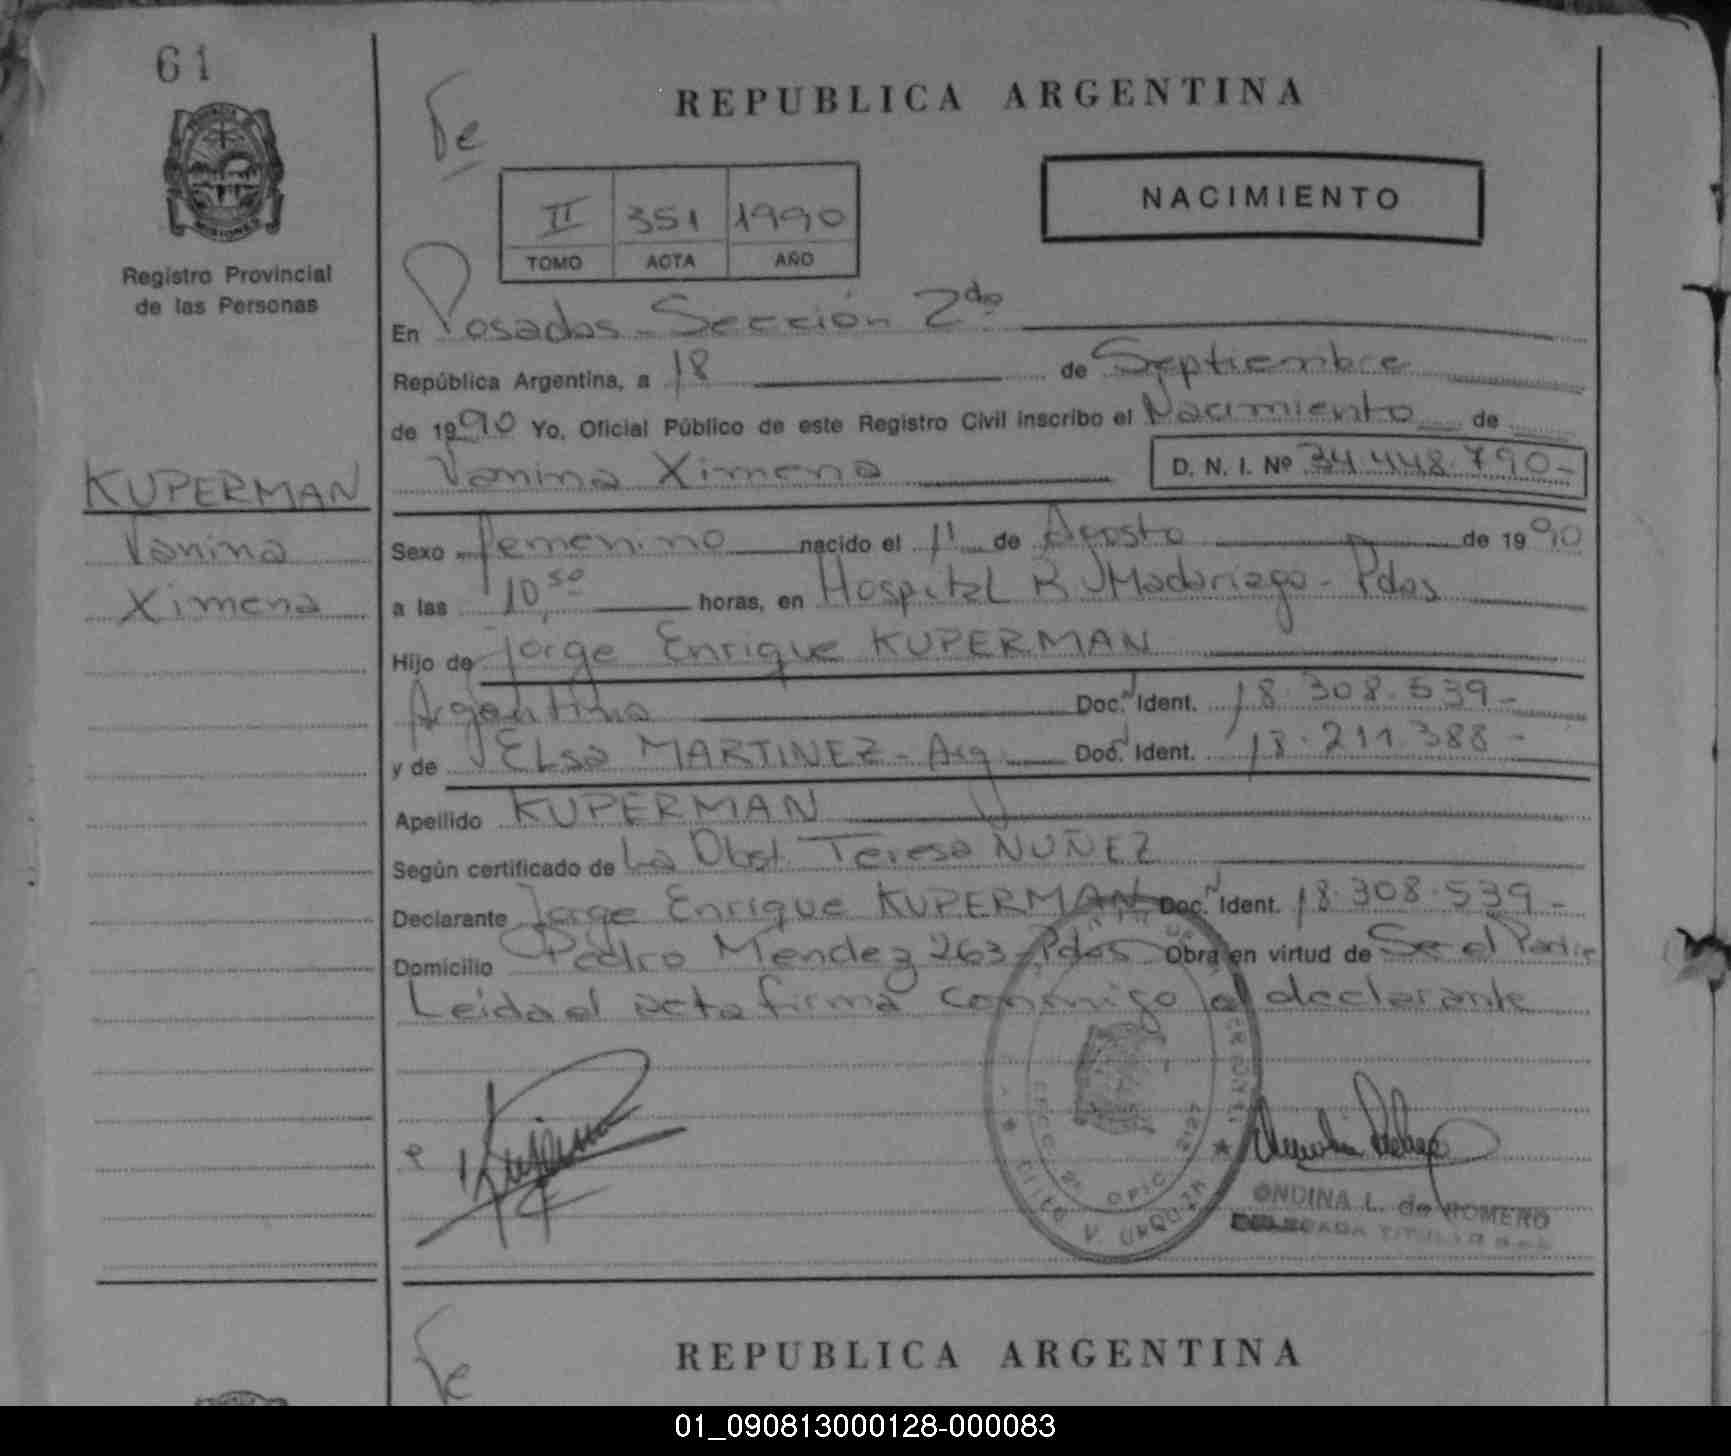 61
Fe
REPUBLICA ARGENTINA
NACIMIENTO
II 351 1990
TOMO ACTA AÑO
MISIONES
Registro Provincial
de las Personas
En Posadas - Sección 2da
República Argentina, a 18 de Septiembre
de 1990 Yo, Oficial Público de este Registro Civil inscribo el Nacimiento de
Vanina Ximena D. N. I. Nº 34.448.790-
KUPERMAN
Vanina
Ximena
Sexo femenino nacido el 11 de Agosto de 1990
a las 10,50 horas, en Hospital R. Madariaga - Pdas
Hijo de Jorge Enrique KUPERMAN
Argentino Doc. N Ident. 18.308.539-
y de Elsa MARTINEZ - Arg. Doc. N Ident. 18.211.388-
Apellido KUPERMAN
Según certificado de La Obst. Teresa NUÑEZ
Declarante Jorge Enrique KUPERMAN Doc. N Ident. 18.308.539-
Domicilio Pedro Mendez 263 - Pdas Obra en virtud de Se el Padre
Leida el acta firma conmigo el declarante
OFIC.
URQUIZA
ONDINA L. de ROMERO
TITULAR
Fe
REPUBLICA ARGENTINA
01_090813000128-000083